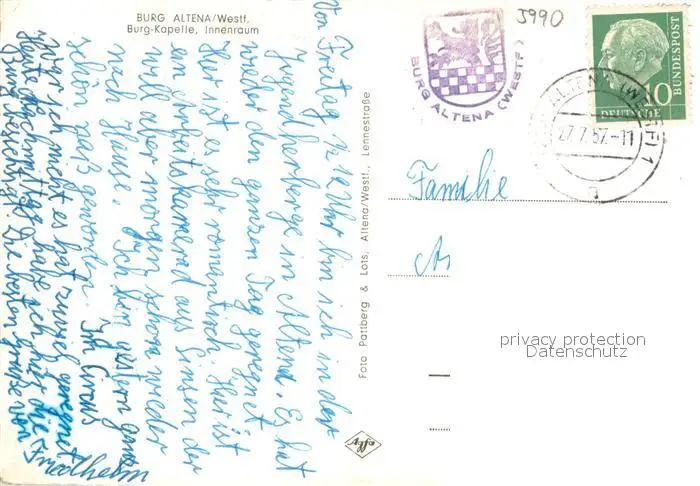 BURG ALTENA/Westf.
Burg-Kapelle, Innenraum
Von Freitag ½ 12 Uhr bin ich in der
Jugendherberge in Altena. Es hat
wieder den ganzen Tag geregnet
Hier ist es sehr romantisch. Hier ist
ein Arbeitskamerad aus Sinsen der
will aber morgen schon wieder
nach Hause. Ich bin gestern ganz
schön naß geworden.
hat zuviel geregnet
habe ich hier die
Burg besichtigt. Die besten Grüße von
Friedhelm
Foto Pattberg & Lots, Altena/Westf., Lennestraße
Agfa
BURG ALTENA (WESTF)
5990
DEUTSCHE BUNDESPOST
10
ALTENA (WESTF) 1
27.7.57.-11
a
Familie
privacy protection
Datenschutz